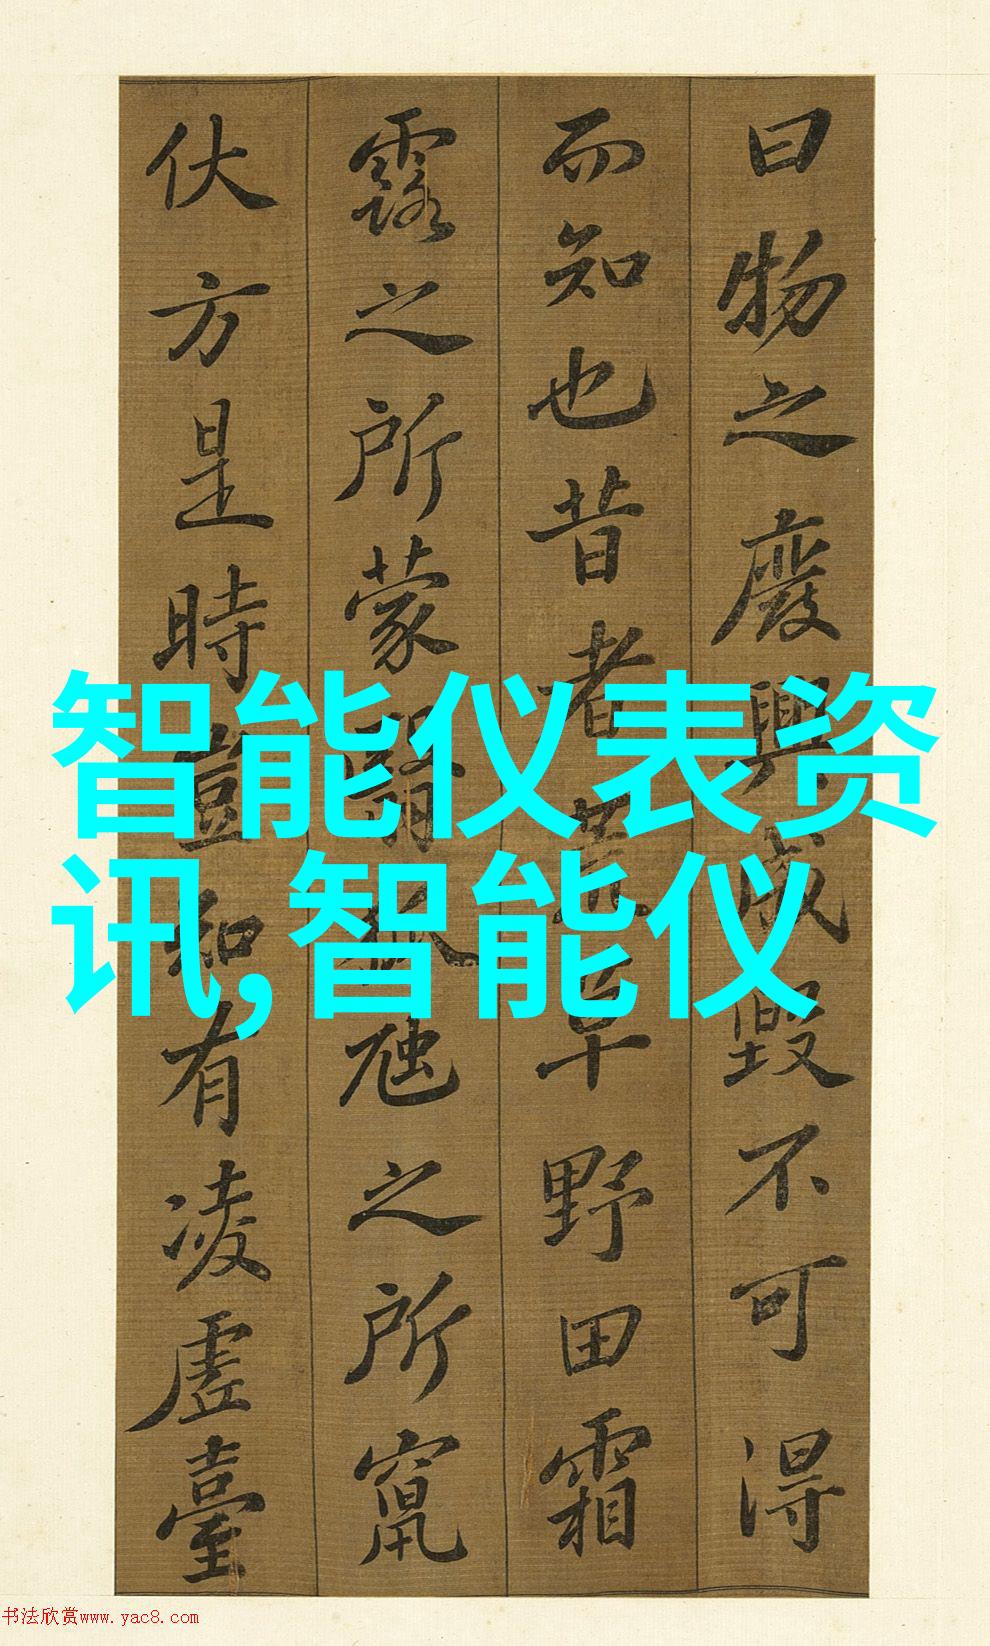 曰物之廢興成毀不可得
而知也昔者荒草野田霜
露之所蒙翳狐虺之所竄
伏方是時豈知有凌虛臺
智能仪表资
讯,智能仪
书法欣赏www.yac8.com